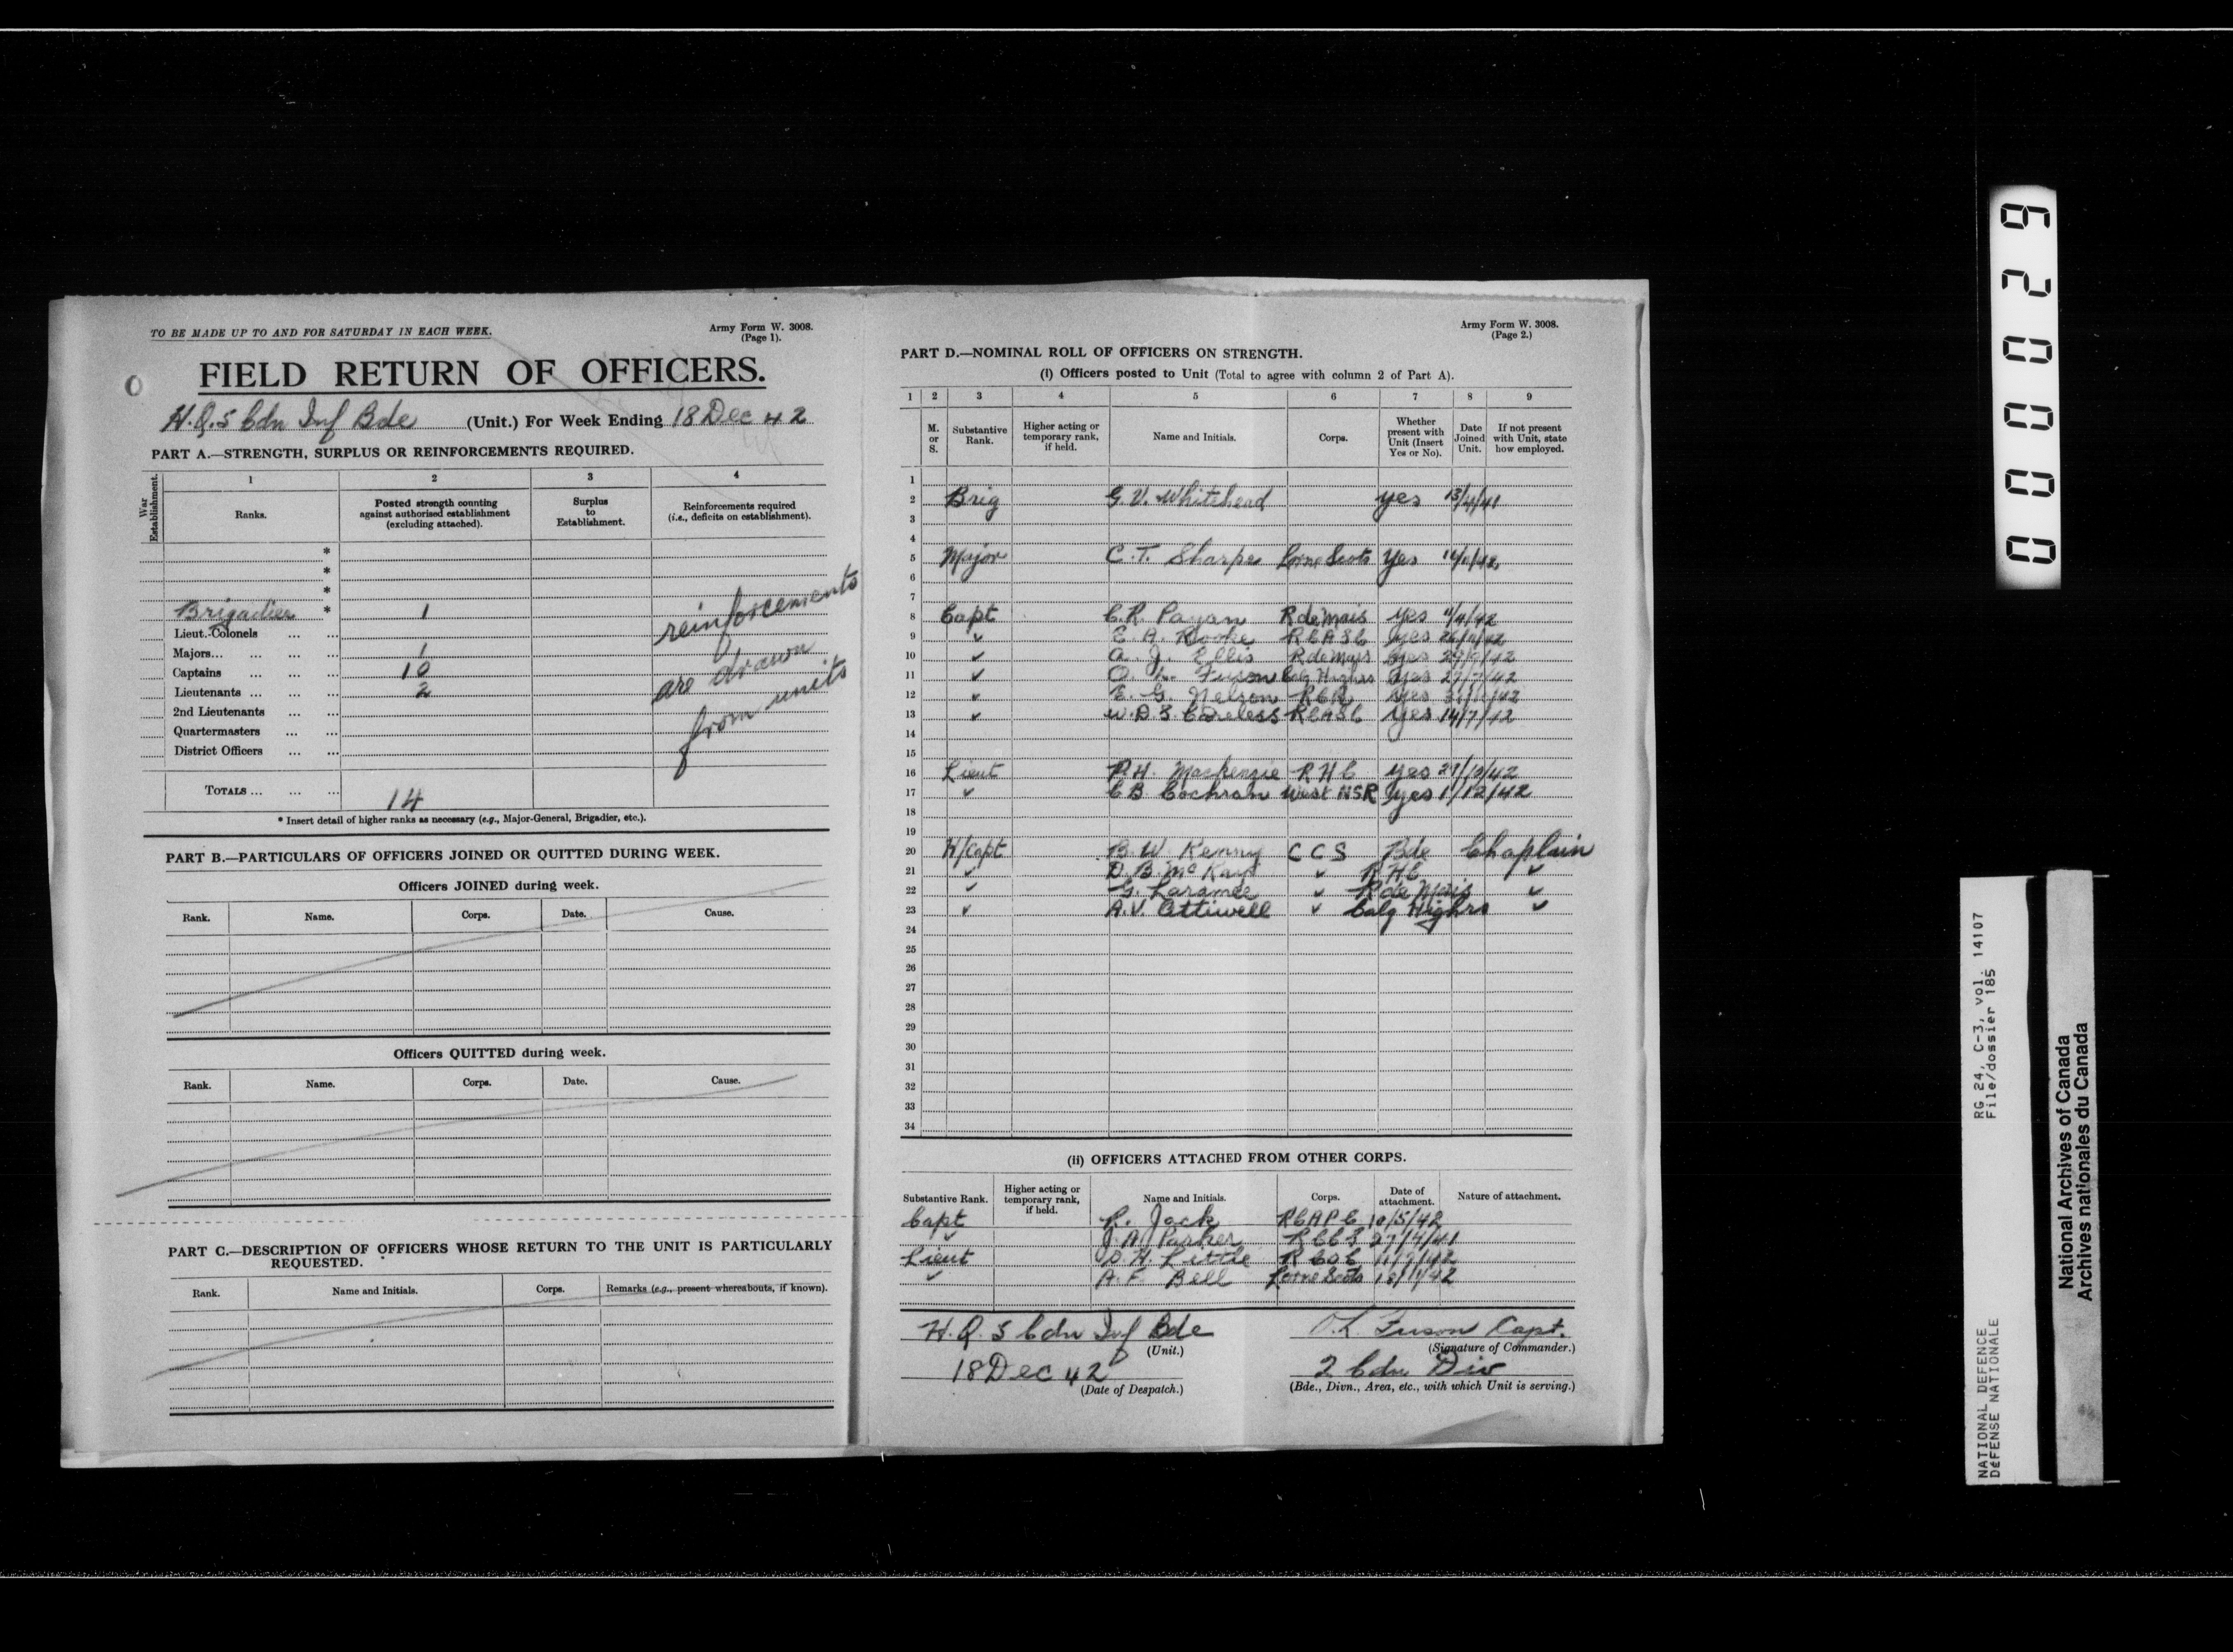 TO BE MADE UP TO AND FOR SATURDAY IN EACH WEEK.
Army Form W. 3008.
(Page 1).
FIELD RETURN OF OFFICERS.
H.Q. 5 Cdn Inf Bde (Unit.) For Week Ending 18 Dec 42
PART A.—STRENGTH, SURPLUS OR REINFORCEMENTS REQUIRED.
War Establishment.
1 2 3 4
Ranks. Posted strength counting against authorised establishment (excluding attached). Surplus to Establishment. Reinforcements required (i.e., deficits on establishment).
*
*
*
Brigadier * 1
Lieut.-Colonels ... ...
Majors... ... ... ... 1
Captains ... ... ... 10
Lieutenants ... ... ... 2
2nd Lieutenants ... ...
Quartermasters ... ...
District Officers ... ...
reinforcements
are drawn
from units
TOTALS ... ... ... 14
* Insert detail of higher ranks as necessary (e.g., Major-General, Brigadier, etc.).
PART B.—PARTICULARS OF OFFICERS JOINED OR QUITTED DURING WEEK.
Officers JOINED during week.
Rank. Name. Corps. Date. Cause.
Officers QUITTED during week.
Rank. Name. Corps. Date. Cause.
PART C.—DESCRIPTION OF OFFICERS WHOSE RETURN TO THE UNIT IS PARTICULARLY
REQUESTED.
Rank. Name and Initials. Corps. Remarks (e.g., present whereabouts, if known).
Army Form W. 3008.
(Page 2.)
PART D.—NOMINAL ROLL OF OFFICERS ON STRENGTH.
(i) Officers posted to Unit (Total to agree with column 2 of Part A).
1 2 3 4 5 6 7 8 9
M. or S. Substantive Rank. Higher acting or temporary rank, if held. Name and Initials. Corps. Whether present with Unit (Insert Yes or No). Date Joined Unit. If not present with Unit, state how employed.
1
2 Brig G.V. Whitehead yes
3
4
5 Major C.T. Sharpe Lorne Scots Yes
6
7
8 Capt C.R. Payan R de Mais yes
9 ✓ E.A. RCASC yes
10 ✓ A.J. Ellis R de Mais yes
11 ✓ O.L. Fuson Calg Highrs yes 27/7/42
12 ✓ E.G. Nelson RCR yes
13 ✓ W.D.S. Careless RCASC yes 14/7/42
14
15
16 Lieut P.H. Mackenzie RHC yes
17 ✓ C B Cochran West NSR yes 1/12/42
18
19
20 H/Capt B.W. Kenny CCS Bde Chaplain
21 ✓ D.B. McKay ✓ RHC ✓
22 ✓ G. Laramee ✓ R de Mais ✓
23 ✓ A.V. Ottiwell ✓ Calg Highrs ✓
24
25
26
27
28
29
30
31
32
33
34
(ii) OFFICERS ATTACHED FROM OTHER CORPS.
Substantive Rank. Higher acting or temporary rank, if held. Name and Initials. Corps. Date of attachment. Nature of attachment.
Capt R. Jack RCAPC 10/5/42
✓ J.A. Parker RCCS 27/4/41
Lieut H. Little
✓ A.F. Bell Lorne Scots
H.Q. 5 Cdn Inf Bde
(Unit.)
18 Dec 42
(Date of Despatch.)
O.L. Fuson Capt.
(Signature of Commander.)
2 Cdn Div
(Bde., Divn., Area, etc., with which Unit is serving.)
000029
RG 24, C-3, vol. 14107
File/dossier 185
NATIONAL DEFENCE
DÉFENSE NATIONALE
National Archives of Canada
Archives nationales du Canada